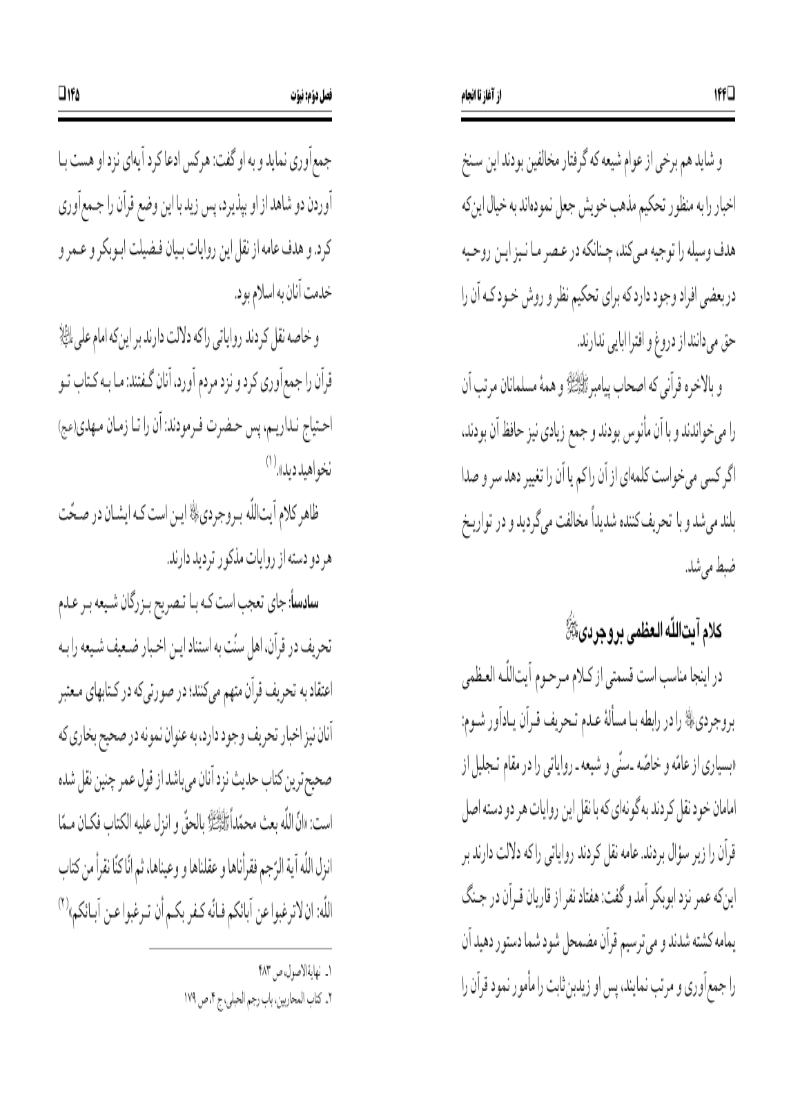 ۱۴۴ از آغاز تا انجام
و شاید هم برخی از عوام شیعه که گرفتار مخالفین بودند این سنخ
اخبار را به منظور تحکیم مذهب خویش جعل نموده‌اند به خیال این‌که
هدف وسیله را توجیه می‌کند، چنانکه در عصر ما نیز این روحیه
در بعضی افراد وجود دارد که برای تحکیم نظر و روش خود که آن را
حق می‌دانند از دروغ و افترا ابایی ندارند.
و بالاخره قرآنی که اصحاب پیامبرﷺ و همهٔ مسلمانان مرتب آن
را می‌خواندند و با آن مأنوس بودند و جمع زیادی نیز حافظ آن بودند،
اگر کسی می‌خواست کلمه‌ای از آن را کم یا آن را تغییر دهد سر و صدا
بلند می‌شد و با تحریف‌کننده شدیداً مخالفت می‌گردید و در تواریخ
ضبط می‌شد.
کلام آیت‌اللّه العظمی بروجردی
در اینجا مناسب است قسمتی از کلام مرحوم آیت‌اللّه العظمی
بروجردی را در رابطه با مسألهٔ عدم تحریف قرآن یادآور شوم:
«بسیاری از عامّه و خاصّه ـ سنّی و شیعه ـ روایاتی را در مقام تجلیل از
امامان خود نقل کردند به گونه‌ای که با نقل این روایات هر دو دسته اصل
قرآن را زیر سؤال بردند. عامه نقل کردند روایاتی را که دلالت دارند بر
این‌که عمر نزد ابوبکر آمد و گفت: هفتاد نفر از قاریان قرآن در جنگ
یمامه کشته شدند و می‌ترسیم قرآن مضمحل شود شما دستور دهید آن
را جمع‌آوری و مرتب نمایند، پس او زیدبن‌ثابت را مأمور نمود قرآن را
فصل دوّم: نبوّت ۱۴۵
جمع‌آوری نماید و به او گفت: هرکس ادعا کرد آیه‌ای نزد او هست با
آوردن دو شاهد از او بپذیرد، پس زید با این وضع قرآن را جمع‌آوری
کرد. و هدف عامه از نقل این روایات بیان فضیلت ابوبکر و عمر و
خدمت آنان به اسلام بود.
و خاصه نقل کردند روایاتی را که دلالت دارند بر این‌که امام علی
قرآن را جمع‌آوری کرد و نزد مردم آورد، آنان گفتند: ما به کتاب تو
احتیاج نداریم، پس حضرت فرمودند: آن را تا زمان مهدی(عج)
نخواهید دید».(۱)
ظاهر کلام آیت‌اللّه بروجردی این است که ایشان در صحّت
هر دو دسته از روایات مذکور تردید دارند.
سادساً: جای تعجب است که با تصریح بزرگان شیعه بر عدم
تحریف در قرآن، اهل سنّت به استناد این اخبار ضعیف شیعه را به
اعتقاد به تحریف قرآن متهم می‌کنند؛ در صورتی‌که در کتابهای معتبر
آنان نیز اخبار تحریف وجود دارد، به عنوان نمونه در صحیح بخاری که
صحیح‌ترین کتاب حدیث نزد آنان می‌باشد از قول عمر چنین نقل شده
است: «انّ اللّه بعث محمّداًﷺ بالحقّ و انزل علیه الکتاب فکان ممّا
انزل اللّه آیة الرّجم فقرأناها و عقلناها و وعیناها، ثم انّا کنّا نقرأ من کتاب
اللّه: ان لاترغبوا عن آبائکم فانّه کفر بکم أن ترغبوا عن آبائکم»(۲)
۱ـ نهایةالاصول، ص ۴۸۳
۲ـ کتاب المحاربین، باب رجم الحبلی، ج ۴، ص ۱۷۹